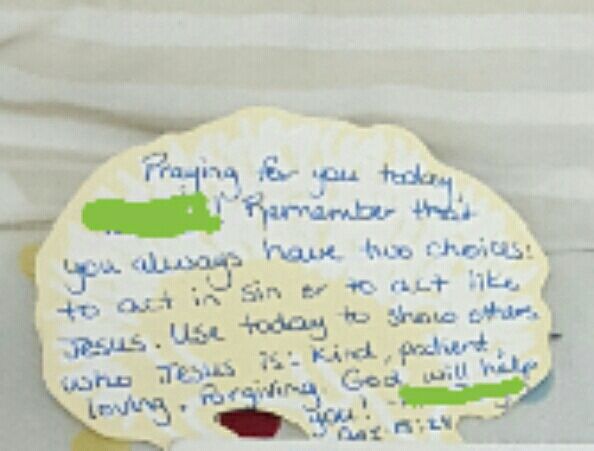 Praying for you today,
! Remember that
you always have two choices:
to act in sin or to act like
Jesus. Use today to show others
who Jesus is: Kind, patient,
loving, forgiving. God will help
you!